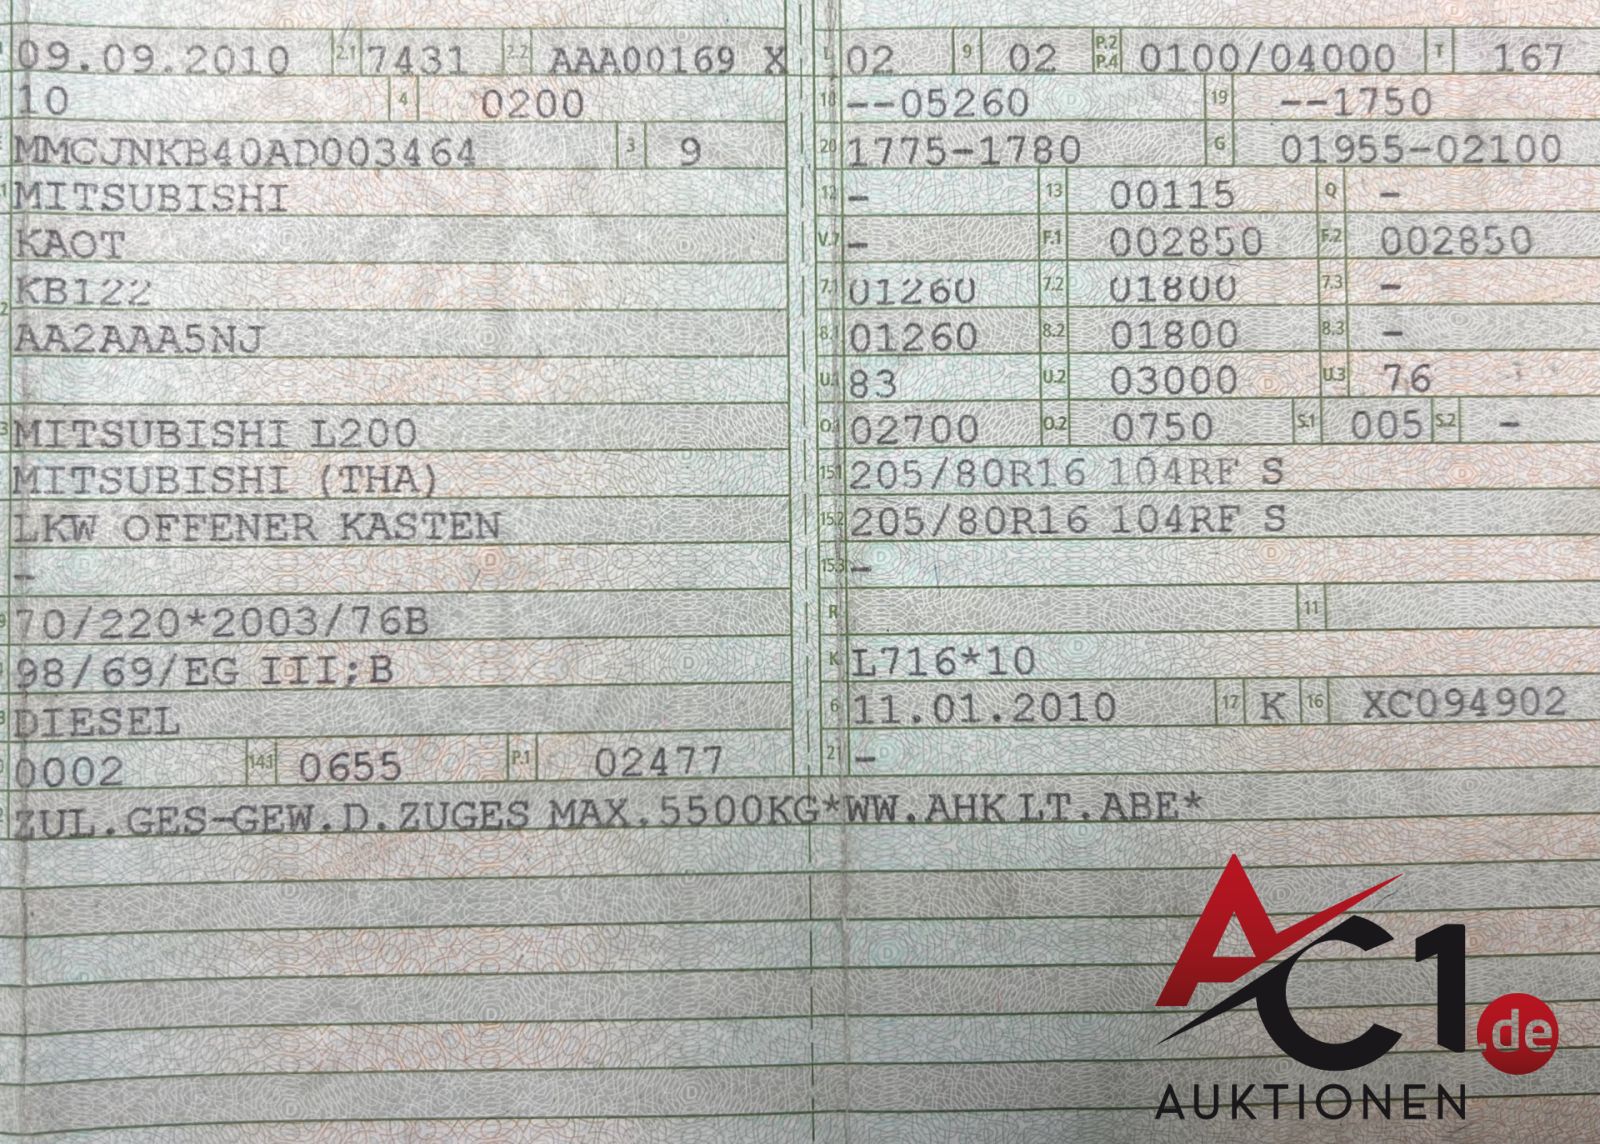 09.09.2010 2.1 7431 2.2 AAA00169 X L 02 9 02 P.2 P.4 0100/04000 T 167
10 4 0200 18 --05260 19 --1750
MMCJNKB40AD003464 3 9 20 1775-1780 G 01955-02100
MITSUBISHI 12 - 13 00115 Q -
KAOT V.7 - F.1 002850 F.2 002850
KB122 7.1 01260 7.2 01800 7.3 -
AA2AAA5NJ 8.1 01260 8.2 01800 8.3 -
U.1 83 U.2 03000 U.3 76
MITSUBISHI L200 O.1 02700 O.2 0750 S.1 005 S.2 -
MITSUBISHI (THA) 15.1 205/80R16 104RF S
LKW OFFENER KASTEN 15.2 205/80R16 104RF S
- 15.3 -
70/220*2003/76B R 11
98/69/EG III;B K L716*10
DIESEL 6 11.01.2010 17 K 16 XC094902
0002 14.1 0655 P.1 02477 21 -
ZUL.GES-GEW.D.ZUGES MAX.5500KG*WW.AHK LT.ABE*
AC1.de
AUKTIONEN